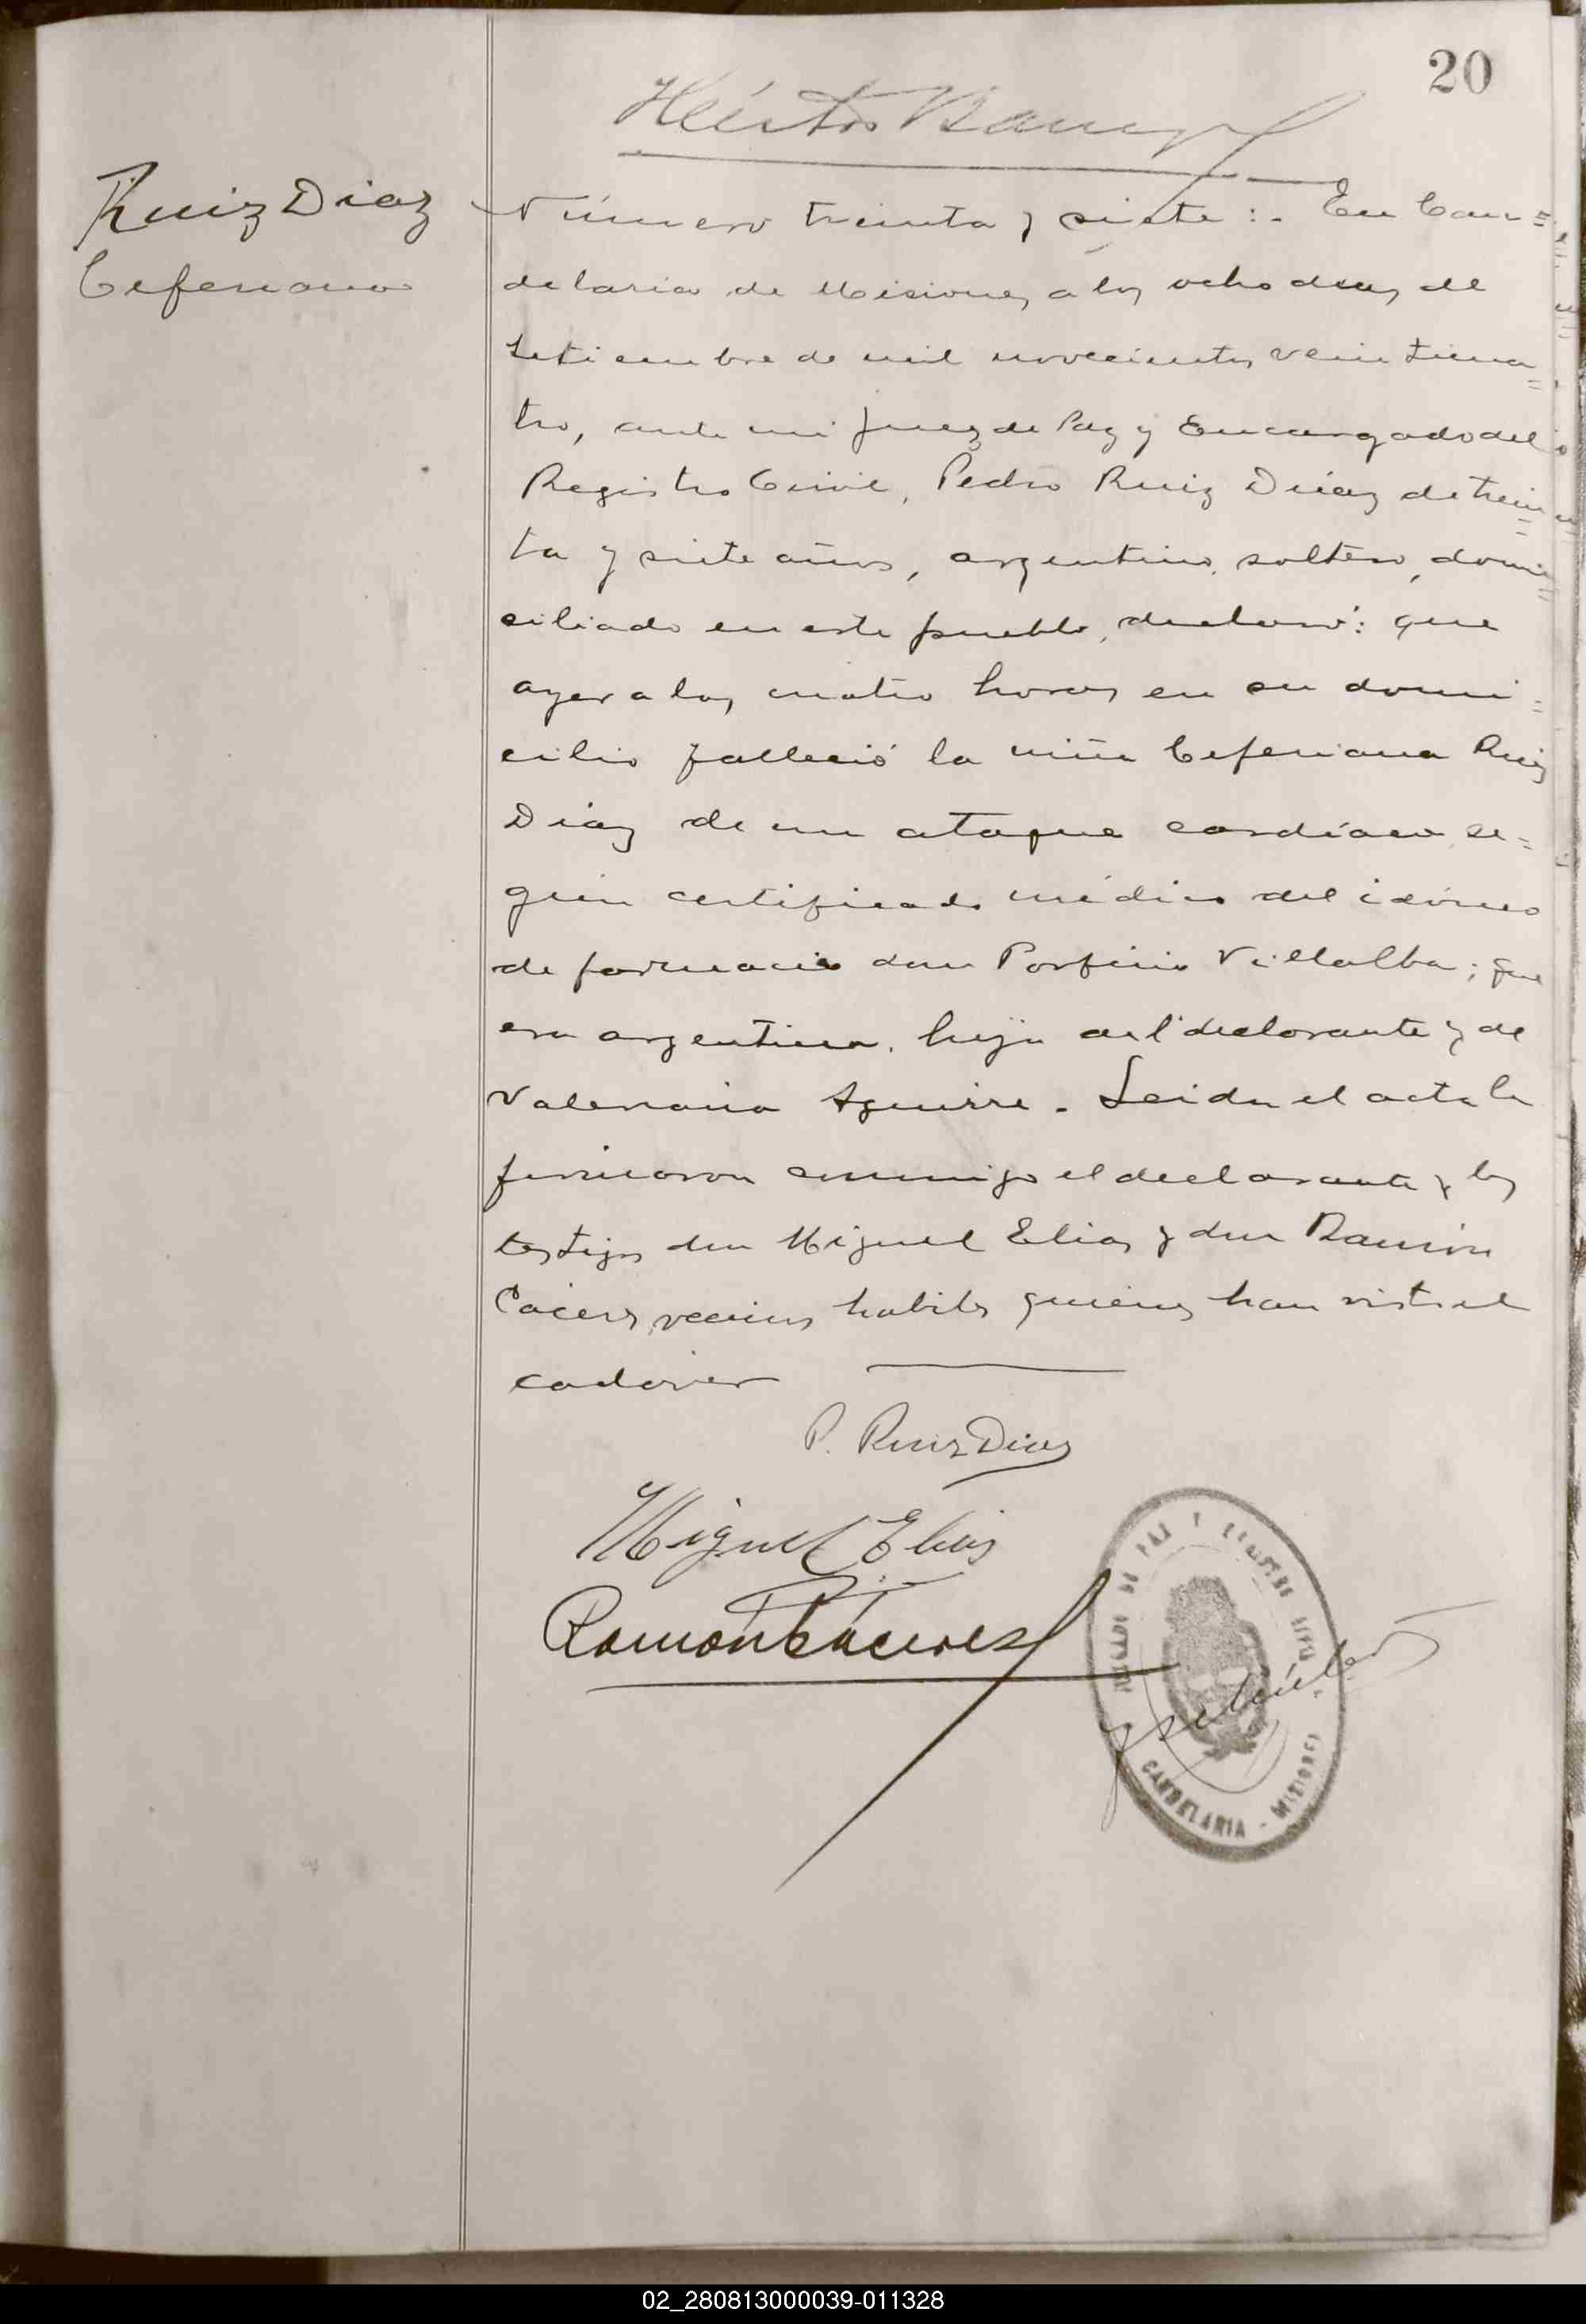 20
Héctor
Ruiz Diaz
Ceferiana
Número treinta y siete :. En Can=
delaria de Misiones, a los ocho dias del
Setiembre de mil novecientos veinticua=
tro, ante mi Juez de Paz y Encargado del
Registro Civil, Pedro Ruiz Diaz de trein=
ta y siete años, argentino, soltero, domi=
ciliado en este pueblo, declaró: que
ayer a las cuatro horas en su domi=
cilio falleció la niña Ceferiana Ruiz
Diaz de un ataque cardíaco, se=
gún certificado médico del idóneo
de farmacia don Porfirio Villalba; que
era argentina, hija del declarante y de
Valeriana Aguirre. Leida el acta la
firmaron conmigo el declarante y los
testigos don Miguel Elias y don Ramón
Cáceres, vecinos habiles quienes han visto el
cadaver
P. Ruiz Diaz
Miguel Elias
Ramón Cáceres
JUZGADO DE PAZ Y REGISTRO CIVIL
CANDELARIA - MISIONES
02_280813000039-011328